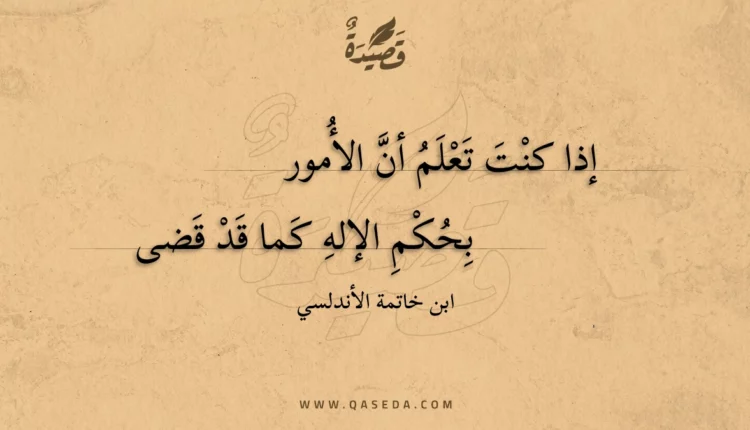 قَصِيْدَةٌ
إذا كنْتَ تَعْلَمُ أنَّ الأُمور
بِحُكْمِ الإلهِ كَما قَدْ قَضى
ابن خاتمة الأندلسي
WWW.QASEDA.COM